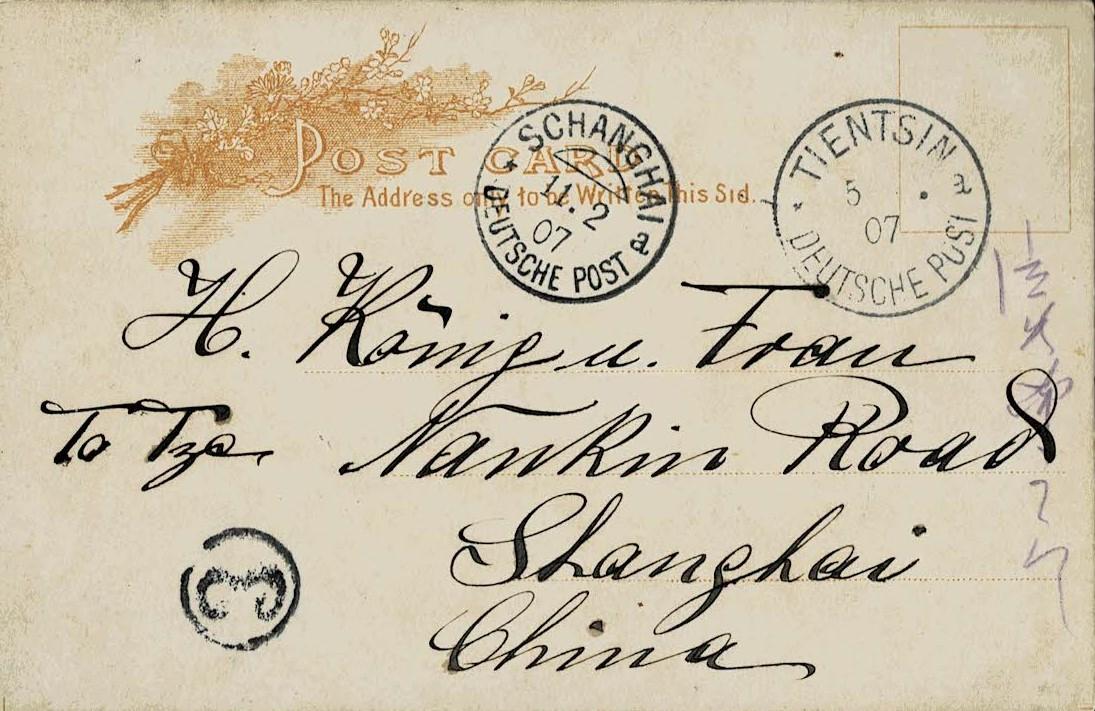 POST CARD
The Address only to be Written this Sid.
SCHANGHAI
11.2
07
DEUTSCHE POST a
TIENTSIN a
5
07
DEUTSCHE POST
H. König u. Frau
To Tze, Nankin Road
Shanghai
China
3